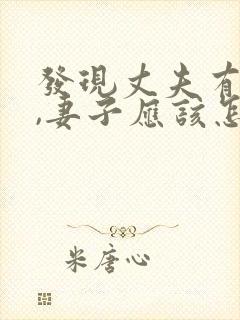 發現丈夫有
,妻子應該怎
米唐心